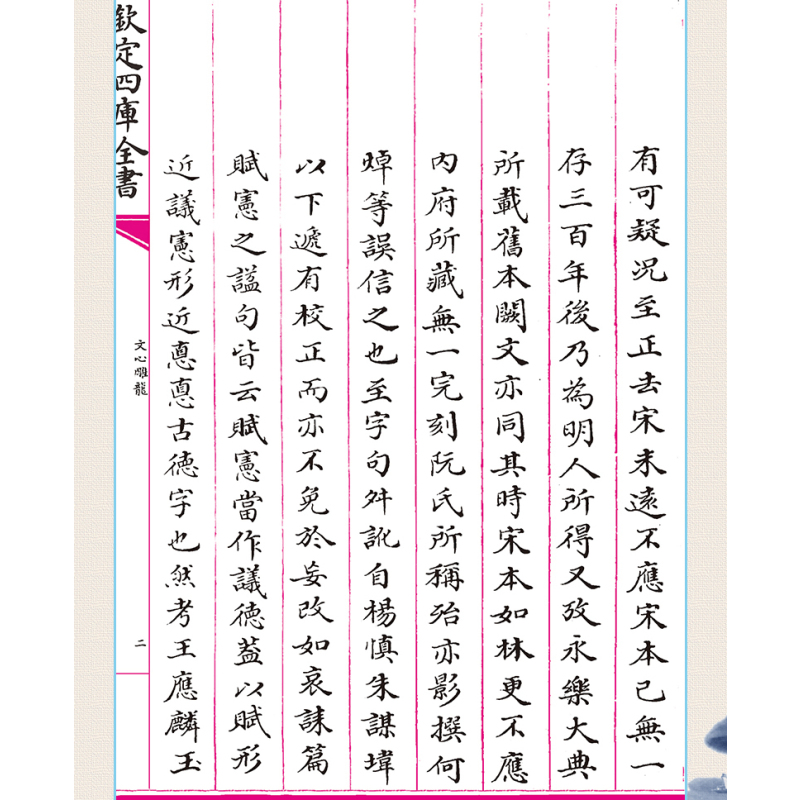 有可疑況至正去宋末遠不應宋本已無一
存三百年後乃為明人所得又攷永樂大典
所載舊本闕文亦同其時宋本如林更不應
內府所藏無一完刻阮氏所稱殆亦影撰何
焯等誤信之也至字句舛訛自楊慎朱謀㙔
以下遞有校正而亦不免於妄改如哀誄篇
賦憲之謚句皆云賦憲當作議德蓋以賦形
近議憲形近悳悳古德字也然考王應麟玉
欽定四庫全書
文心雕龍
二